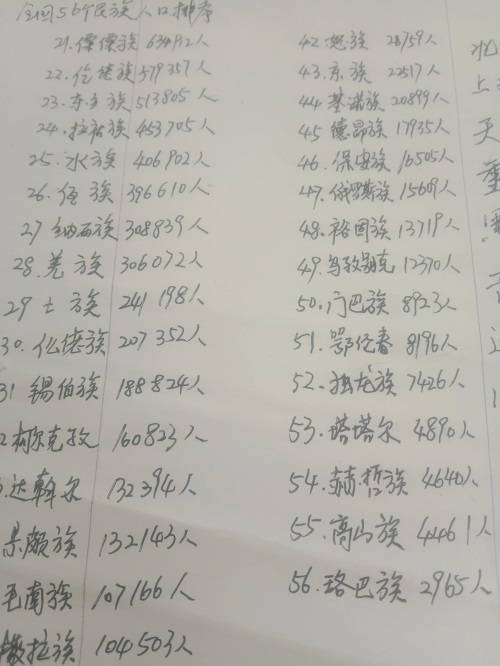 全国56个民族人口排序
21.傈僳族 634912人
22.仡佬族 579357人
23.东乡族 513805人
24.拉祜族 453705人
25.水族 406902人
26.佤族 396610人
27.纳西族 308839人
28.羌族 306072人
29.土族 241198人
30.仫佬族 207352人
31.锡伯族 188824人
2.柯尔克孜 160823人
达斡尔 132394人
景颇族 132143人
毛南族 107166人
撒拉族 104503人
42.怒族 28759人
43.京族 22517人
44.基诺族 20899人
45.德昂族 17935人
46.保安族 16505人
47.俄罗斯族 15609人
48.裕固族 13719人
49.乌孜别克 12370人
50.门巴族 8923人
51.鄂伦春 8196人
52.独龙族 7426人
53.塔塔尔 4890人
54.赫哲族 4640人
55.高山族 4461人
56.珞巴族 2965人
北
上
天
重